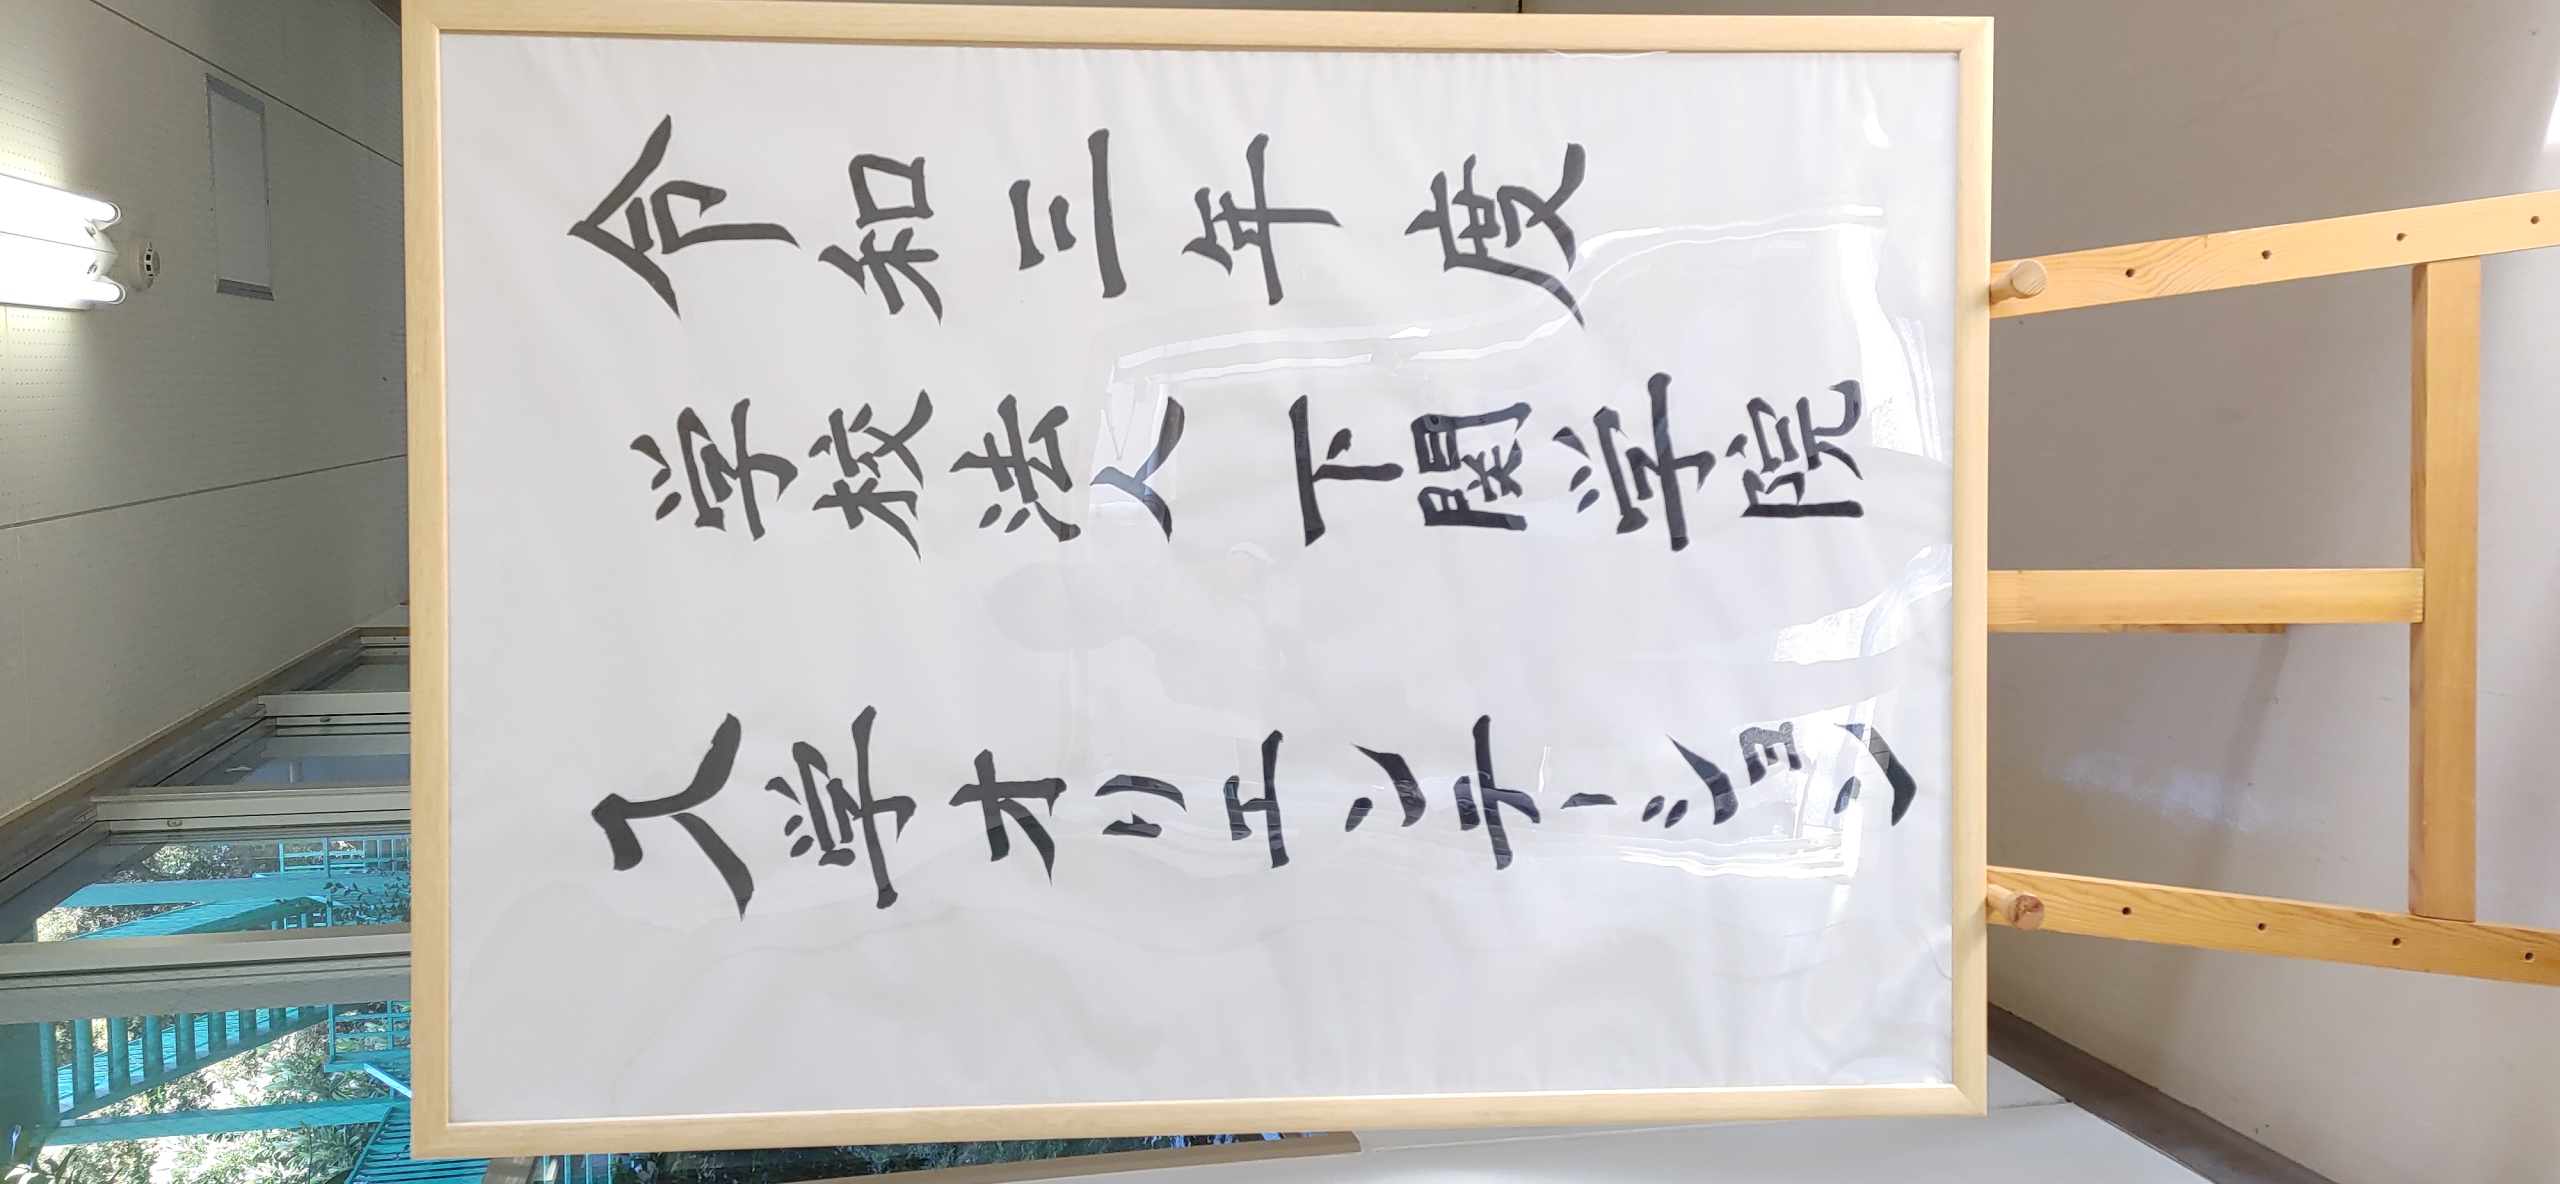 令和三年度
学校法人 下関学院
入学オリエンテーション